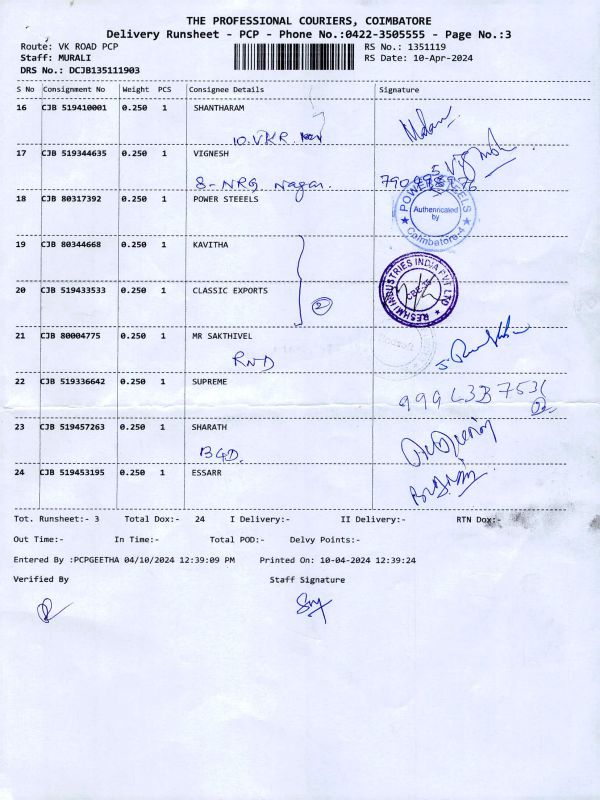 THE PROFESSIONAL COURIERS, COIMBATORE
Delivery Runsheet - PCP - Phone No.:0422-3505555 - Page No.:3
Route: VK ROAD PCP RS No.: 1351119
Staff: MURALI RS Date: 10-Apr-2024
DRS No.: DCJB135111903
S No Consignment No Weight PCS Consignee Details Signature
16 CJB 519410001 0.250 1 SHANTHARAM
10. VKR.
17 CJB 519344635 0.250 1 VIGNESH
8- NRG Nagar.
18 CJB 80317392 0.250 1 POWER STEEELS
POWER STEELS
Authenticated
by
Coimbatore-4
19 CJB 80344668 0.250 1 KAVITHA
RESHMI INDUSTRIES INDIA PVT LTD
20 CJB 519433533 0.250 1 CLASSIC EXPORTS
2
21 CJB 80004775 0.250 1 MR SAKTHIVEL
RND
22 CJB 519336642 0.250 1 SUPREME
23 CJB 519457263 0.250 1 SHARATH
24 CJB 519453195 0.250 1 ESSARR
Tot. Runsheet:- 3 Total Dox:- 24 I Delivery:- II Delivery:- RTN Dox:-
Out Time:- In Time:- Total POD:- Delvy Points:-
Entered By :PCPGEETHA 04/10/2024 12:39:09 PM Printed On: 10-04-2024 12:39:24
Verified By Staff Signature